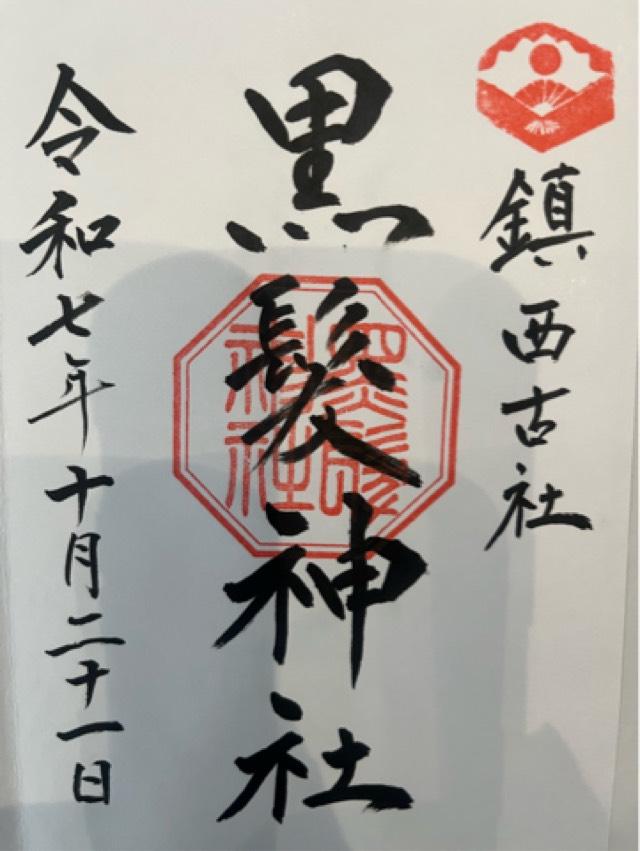 鎮西古社
黒髪神社
黒髪神社
令和七年十月二十一日